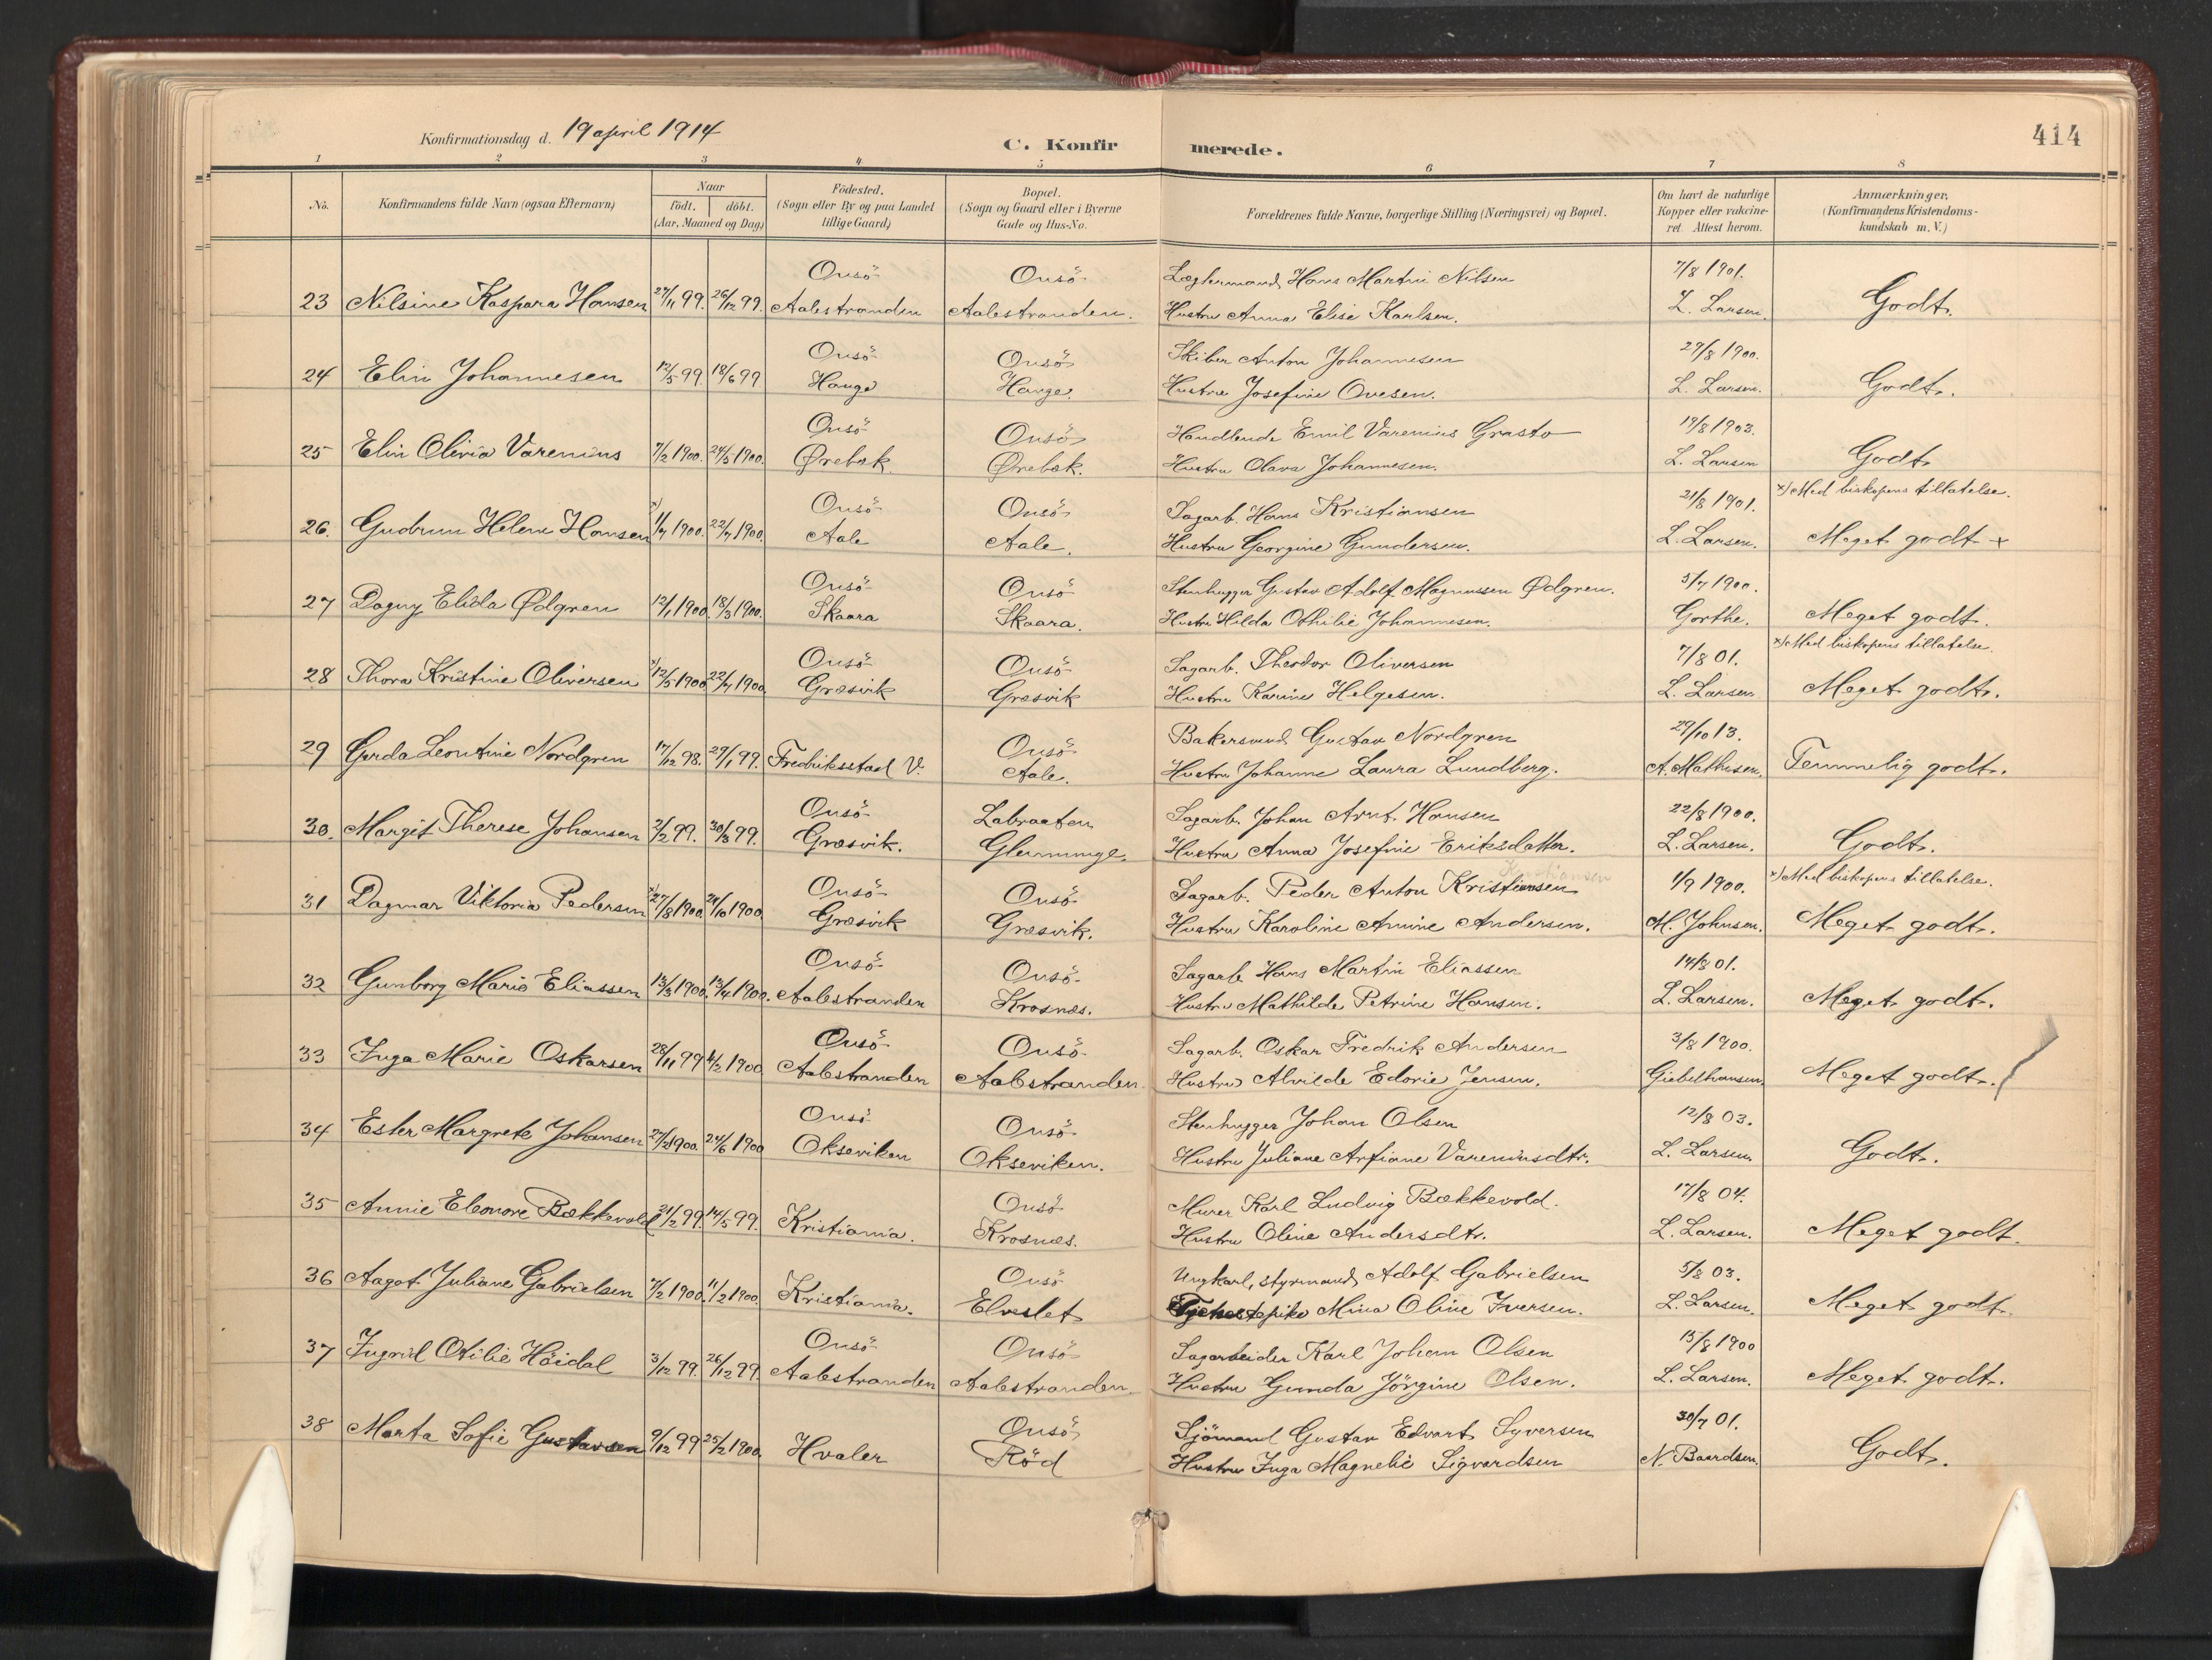 Konfirmationsdag d. 19 april 1914
C. Konfir merede. 414
1 2 3 4 5 6 7 8
No. Konfirmandens fulde Navn (ogsaa Efternavn) Naar födt. döbt. (Aar, Maaned og Dag) Födested. (Sogn eller By og paa Landet tillige Gaard) Bopæl. (Sogn og Gaard eller i Byerne Gade og Hus-No. Forældrenes fulde Navne, borgerlige Stilling (Næringsvei) og Bopæl. Om havt de naturlige Kopper eller vakcineret. Attest herom. Anmærkninger, (Konfirmandens Kristendomskundskab m. V.)
Onsö Onsö Hans Martin Nilsen 7/8 1901.
23 Nilsine Kaspara Hansen 27/11 99. 26/12 99. Aalestranden Aalestranden. Hustru Anna Elise Karlsen. L. Larsen. Godt.
Onsö Onsö Skiber Anton Johannesen 29/8 1900.
24 Elin Johannesen 12/5 99. 18/6 99 Hauge Hauge. Hustru Josefine Ovesen. L. Larsen. Godt.
Onsö Onsö Handlende Emil Varenius Grasto 19/8 1903.
25 Elin Olivia Varenius 7/2 1900. 24/5 1900. Ørebæk Ørebæk. Hustru Olava Johannesen. L. Larsen Godt
Onsö Onsö Sagarb. Hans Kristiansen 21/8 1901. x) Med biskopens tillatelse.
26. Gudrun Helene Hansen x) 1/7 1900. 22/7 1900. Aale Aale. Hustru Georgine Gundersen. L. Larsen. Meget godt x
Onsö Onsö Stenhugger Gustav Adolf Magnussen Ødgren. 5/7 1900.
27 Dagny Elida Ødgren 12/1 1900. 18/3 1900. Skaara Skaara. Hustru Hilda Othilie Johannesen. Gorthe. Meget godt.
Onsö Onsö Sagarb. Theodor Oliversen 7/8 01. x) Med biskopens tillatelse.
28 Thora Kristine Oliversen x) 12/5 1900 22/7 1900. Græsvik Græsvik Hustru Karine Helgesen. L. Larsen Meget godt.
Onsö Bakersvend Gustav Nordgren 29/10 13.
29 Gerda Leontine Nordgren 17/12 98. 29/1 99. Fredriksstad V. Aale. Hustru Johanne Laura Lundberg. A. Mathisen. Temmelig godt.
Onsö Labraaten Sagarb. Johan Arnt. Hansen 22/8 1900.
30. Margit Therese Johansen 2/2 99. 30/3 99. Græsvik. Glemminge. Hustru Anna Josefine Eriksdatter. L. Larsen. Godt.
Onsö Onsö Sagarb. Peder Anton Kristiansen Kristiansen 1/9 1900. x) Med biskopens tillatelse.
31 Dagmar Viktoria Pedersen x) 27/8 1900. 21/10 1900. Græsvik Græsvik. Hustru Karoline Amine Andersen. M. Johnsen. Meget godt.
Onsö Onsö Sagarb Hans Martin Eliassen 14/8 01.
32 Gunborg Marie Eliassen 13/3 1900. 13/4 1900. Aalestranden Krosnæs. Hustru Mathilde Petrine Hansen. L. Larsen. Meget godt.
Onsö Onsö Sagarb. Oskar Fredrik Andersen 3/8 1900.
33 Inga Marie Oskarsen 28/11 99 4/2 1900 Aalestranden Aalestranden Hustru Alvilde Edorie Jensen. Giebelhausen Meget godt.
Onsö Onsö Stenhugger Johan Olsen 12/8 03.
34 Ester Margrete Johansen 27/2 1900. 24/6 1900 Okseviken Okseviken. Hustru Juliane Arfiane Vareniusdtr. L. Larsen. Godt.
Onsö Murer Karl Ludvig Bækkevold. 17/8 04.
35 Annie Eleonore Bækkevold 21/2 99. 14/5 99. Kristiania. Krosnæs. Hustru Oline Andersdtr. L. Larsen. Meget godt.
Onsö Ungkarl, styrmand, Adolf Gabrielsen 5/8 03.
36 Aagot Juliane Gabrielsen 7/2 1900. 11/2 1900. Kristiania. Elveslet Mina Oline Iversen. L. Larsen. Meget godt.
Onsö Onsö Sagarbeider Karl Johan Olsen 15/8 1900
37 Ingrid Otilie Höidal 3/12 99. 26/12 99. Aalestranden Aalestranden. Hustru Gunda Jörgine Olsen. L. Larsen. Meget godt.
Onsö Sjömand Gustav Edvart Syversen 30/7 01.
38 Marta Sofie Gustavsen 9/12 99 25/2 1900. Hvaler Röd Hustru Inga Magnelie Sigvardsen N. Baardsen. Godt.